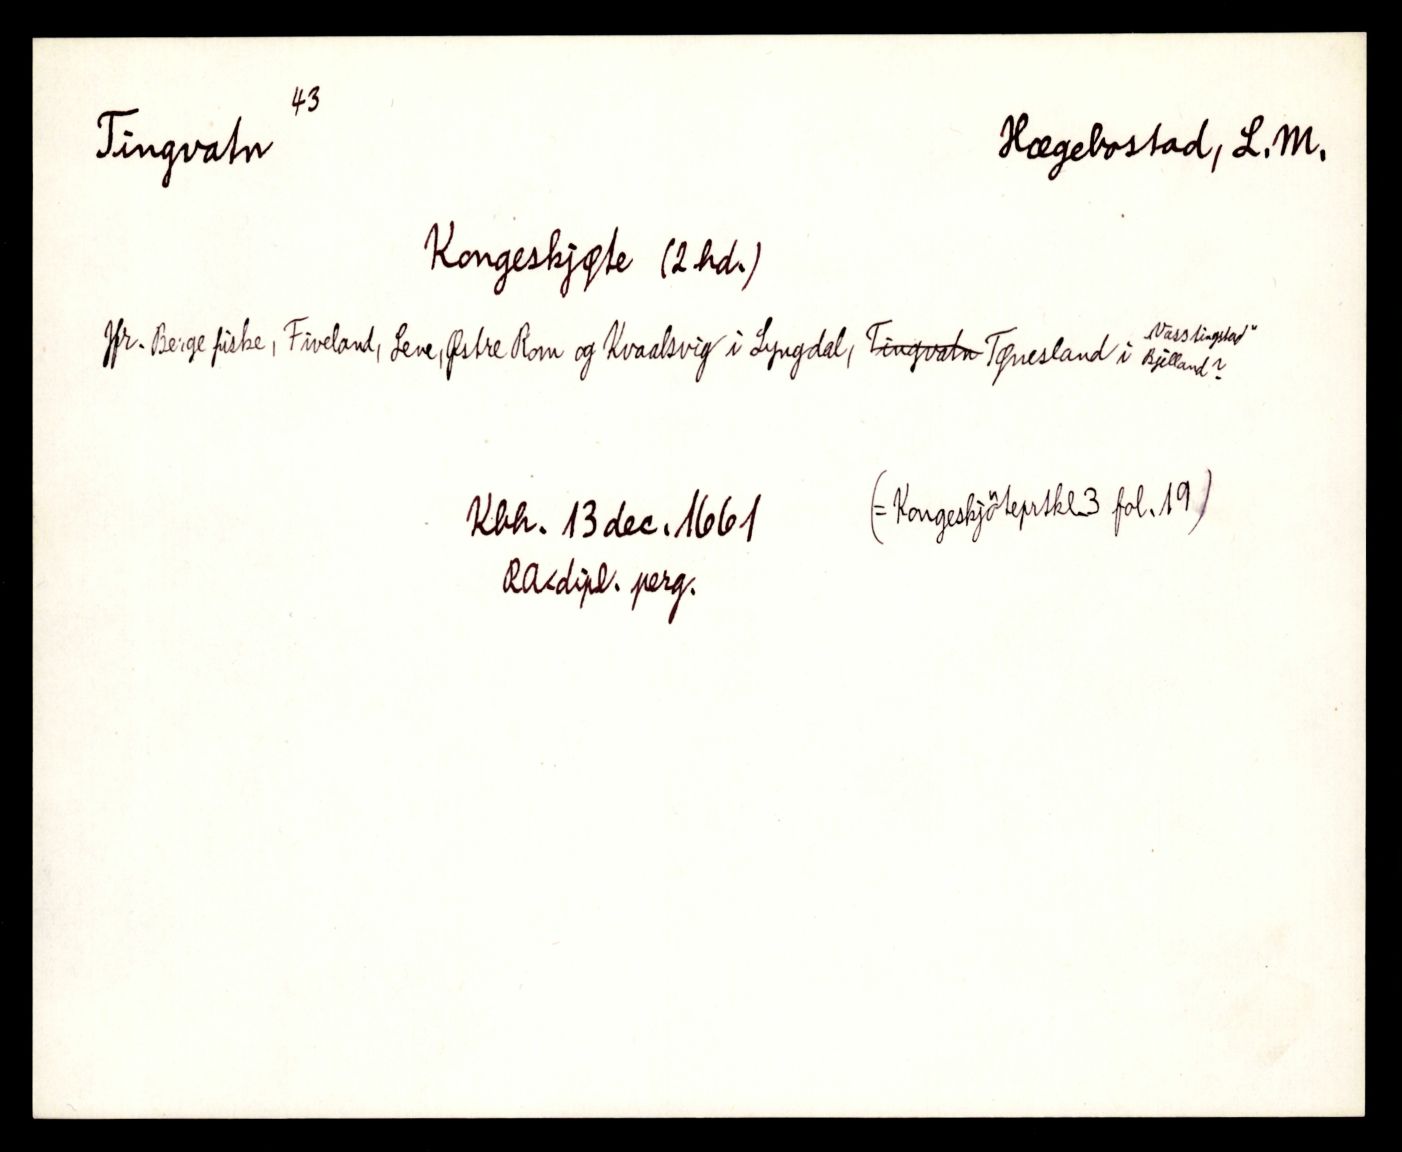 Tingvatn 43
Hægebostad, L.M.
Kongeskjøte (2 hd.)
Jfr. Berge fiiske, Fiveland, Lene, Østre Rom og Kvaalsvig i Lyngdal, Tingvatn Tønesland i
„Vasstingstad"
Bjelland?
Kbh. 13 dec. 1661
(= Kongeskjöteprtkl. 3 fol. 19)
RA<dipl. perg.